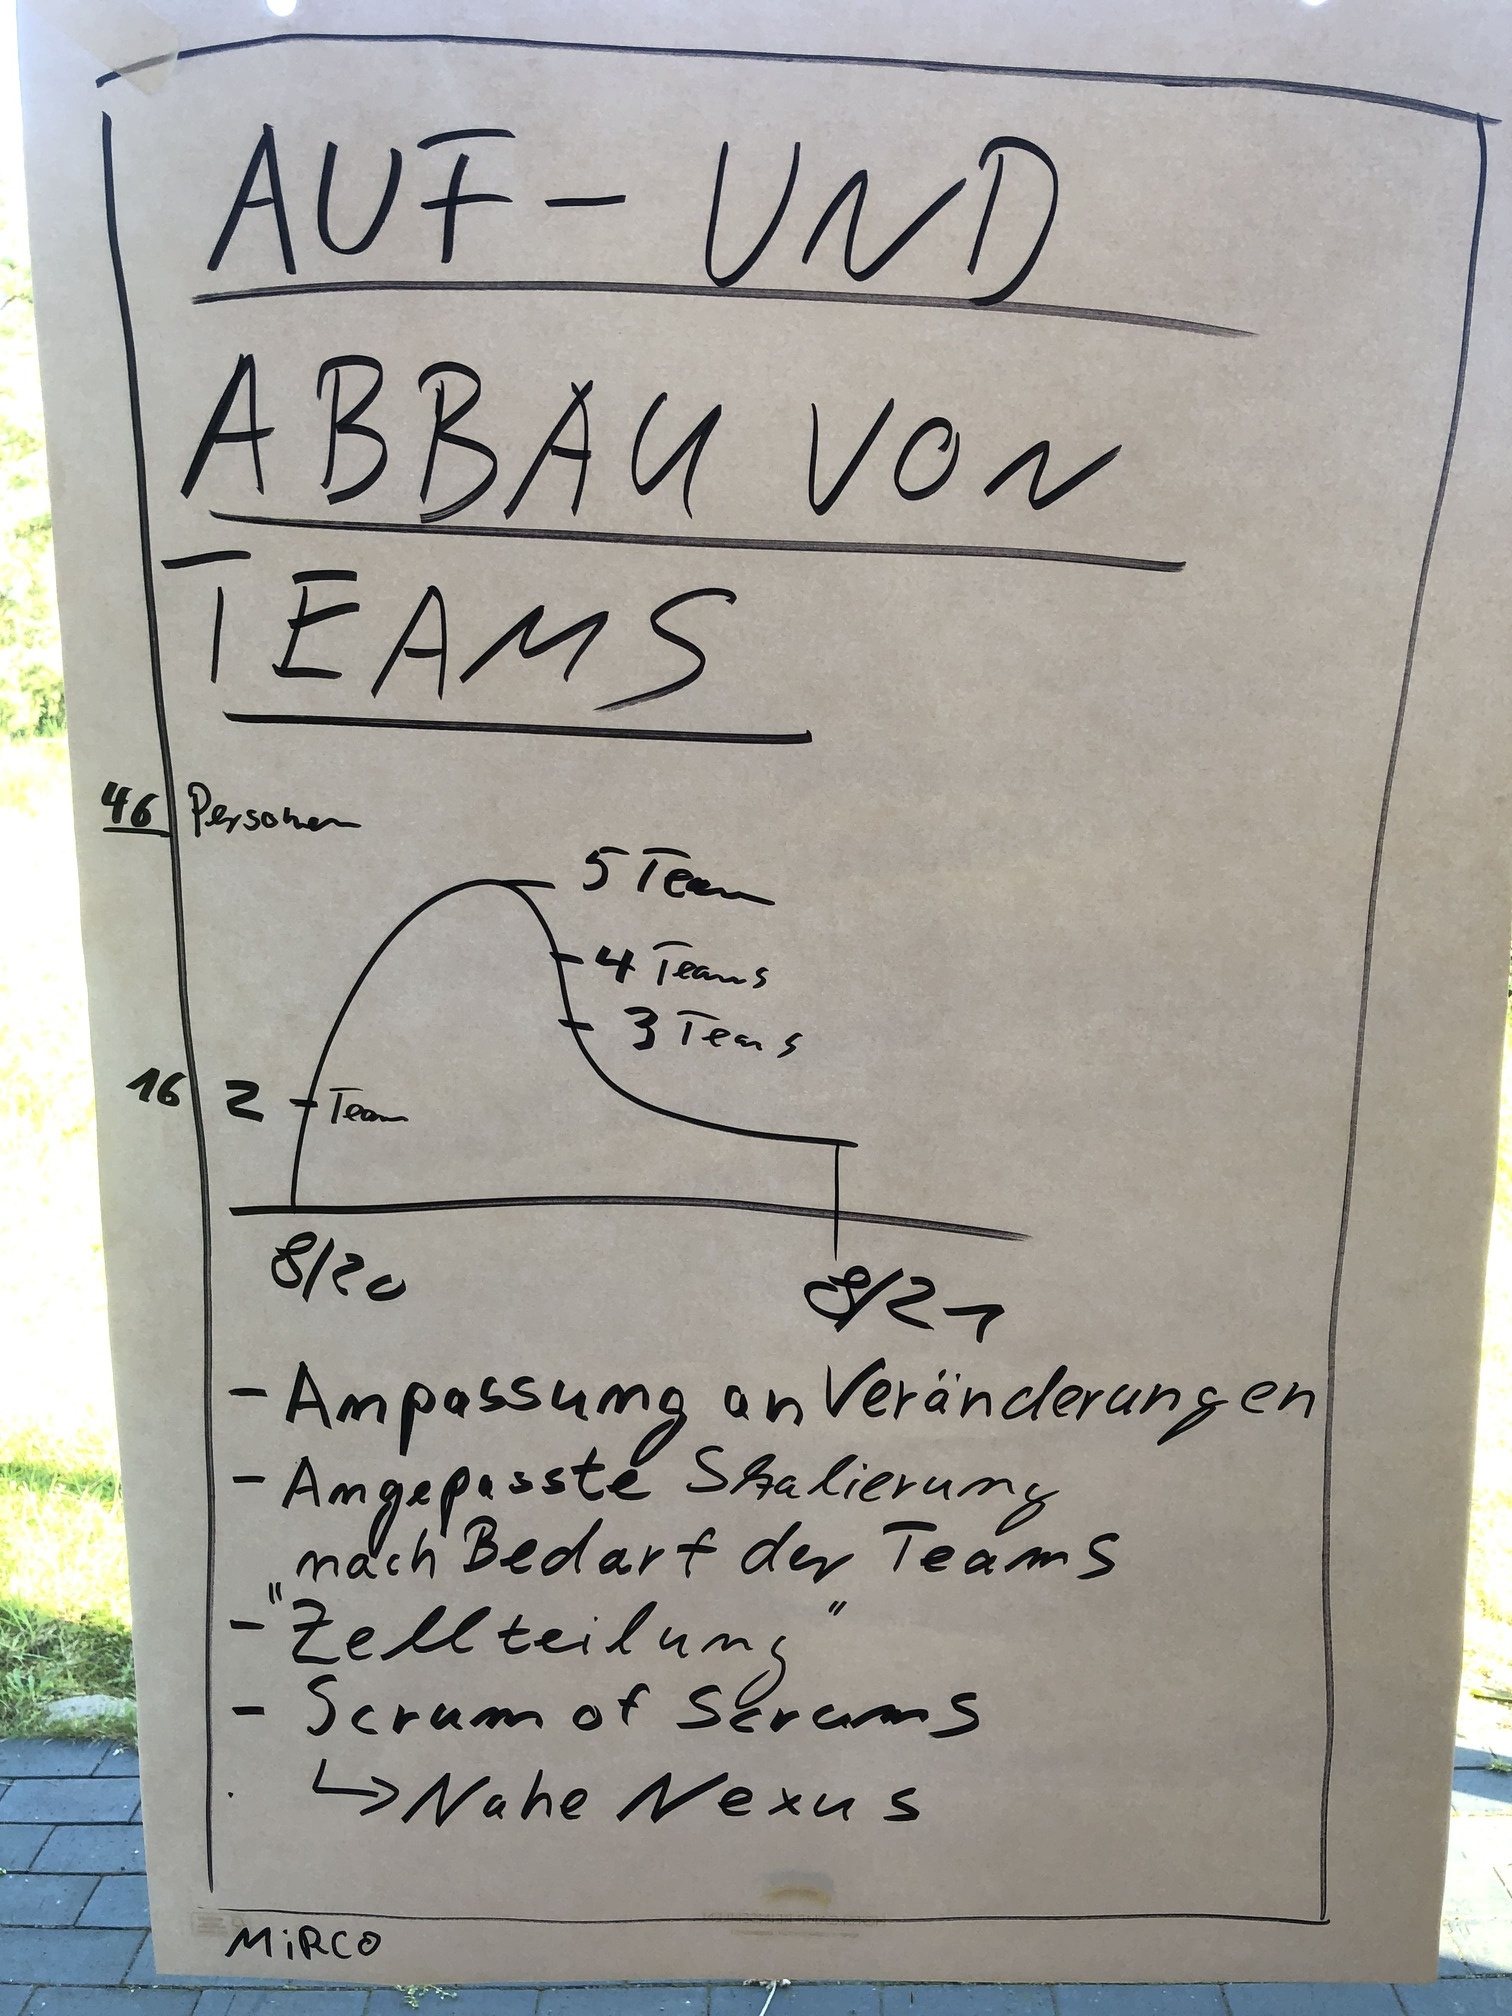 AUF- UND
ABBAU VON
TEAMS
46 Personen
5 Team
4 Teams
3 Teams
16 2 Team
8/20
8/21
- Anpassung an Veränderungen
- Angepasste Skalierung
nach Bedarf der Teams
- "Zellteilung"
- Scrum of Scrums
↳ Nahe Nexus
MiRCO